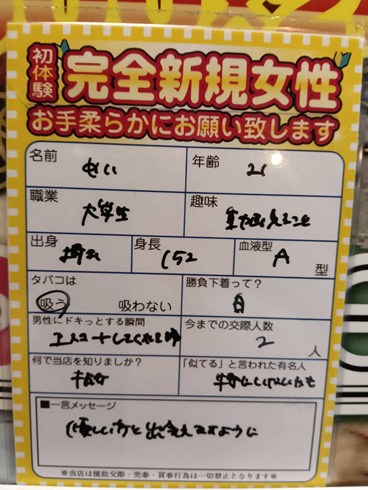 初体験
完全新規女性
お手柔らかにお願い致します
名前 せい
年齢 21
職業 大学生
趣味
出身 埼玉
身長 152
血液型 A 型
タバコは
吸う 吸わない
勝負下着って？ 白
男性にドキっとする瞬間
今までの交際人数 2 人
何で当店を知りましたか？
「似てる」と言われた有名人
■一言メッセージ
優しい方と出会えますように
※当店は援助交際・売春・買春行為は一切禁止となります※